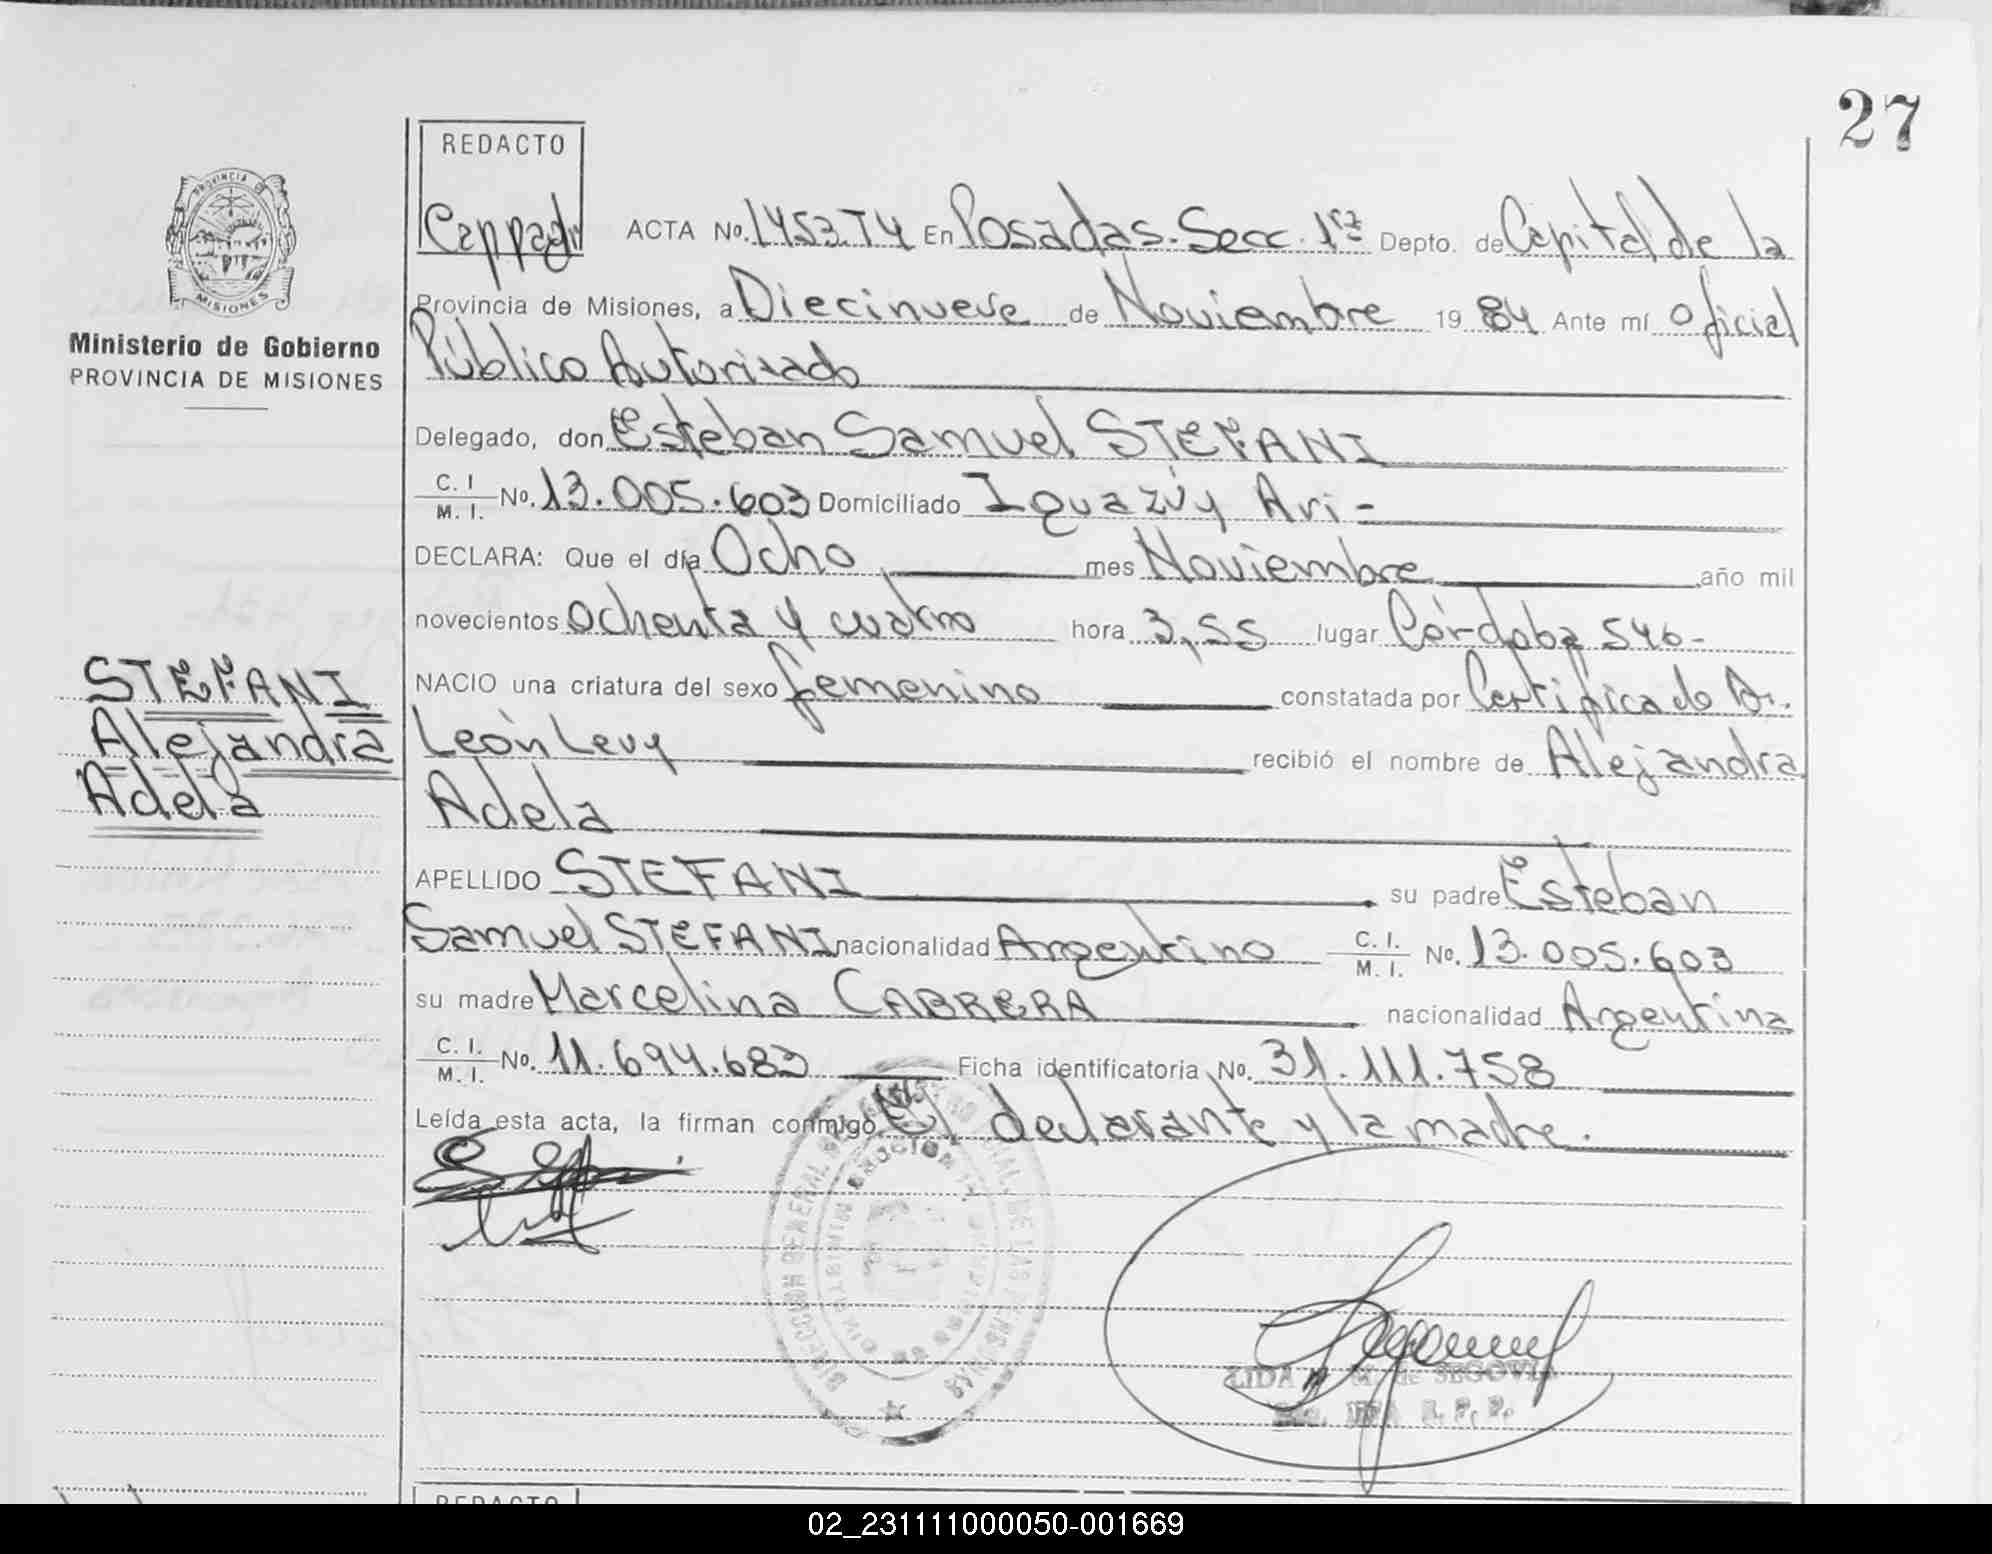 27
REDACTO
PROVINCIA DE
MISIONES
Ministerio de Gobierno
PROVINCIA DE MISIONES
ACTA No. 1453.T4 En Posadas. Secc. 1ra Depto. de Capital de la
Provincia de Misiones, a Diecinueve de Noviembre 1984 Ante mí Oficial
Público Autorizado
Delegado, don Esteban Samuel STEFANI
C. I. M. I. No. 13.005.603 Domiciliado Iguazú y Ari-
DECLARA: Que el día Ocho mes Noviembre año mil
novecientos ochenta y cuatro hora 3,55 lugar Córdoba 546-
NACIO una criatura del sexo femenino constatada por Certificado Dr.
León Levy recibió el nombre de Alejandra
Adela
STEFANI
Alejandra
Adela
APELLIDO STEFANI su padre Esteban
Samuel STEFANI nacionalidad Argentino C. I. M. I. No. 13.005.603
su madre Marcelina CABRERA nacionalidad Argentina
C. I. M. I. No. 11.694.683 Ficha identificatoria No. 31.111.758
Leída esta acta, la firman conmigo El declarante y la madre.
DIRECCION GENERAL DE LAS PERSONAS
de SEGOVIA
REDACTO
02_231111000050-001669